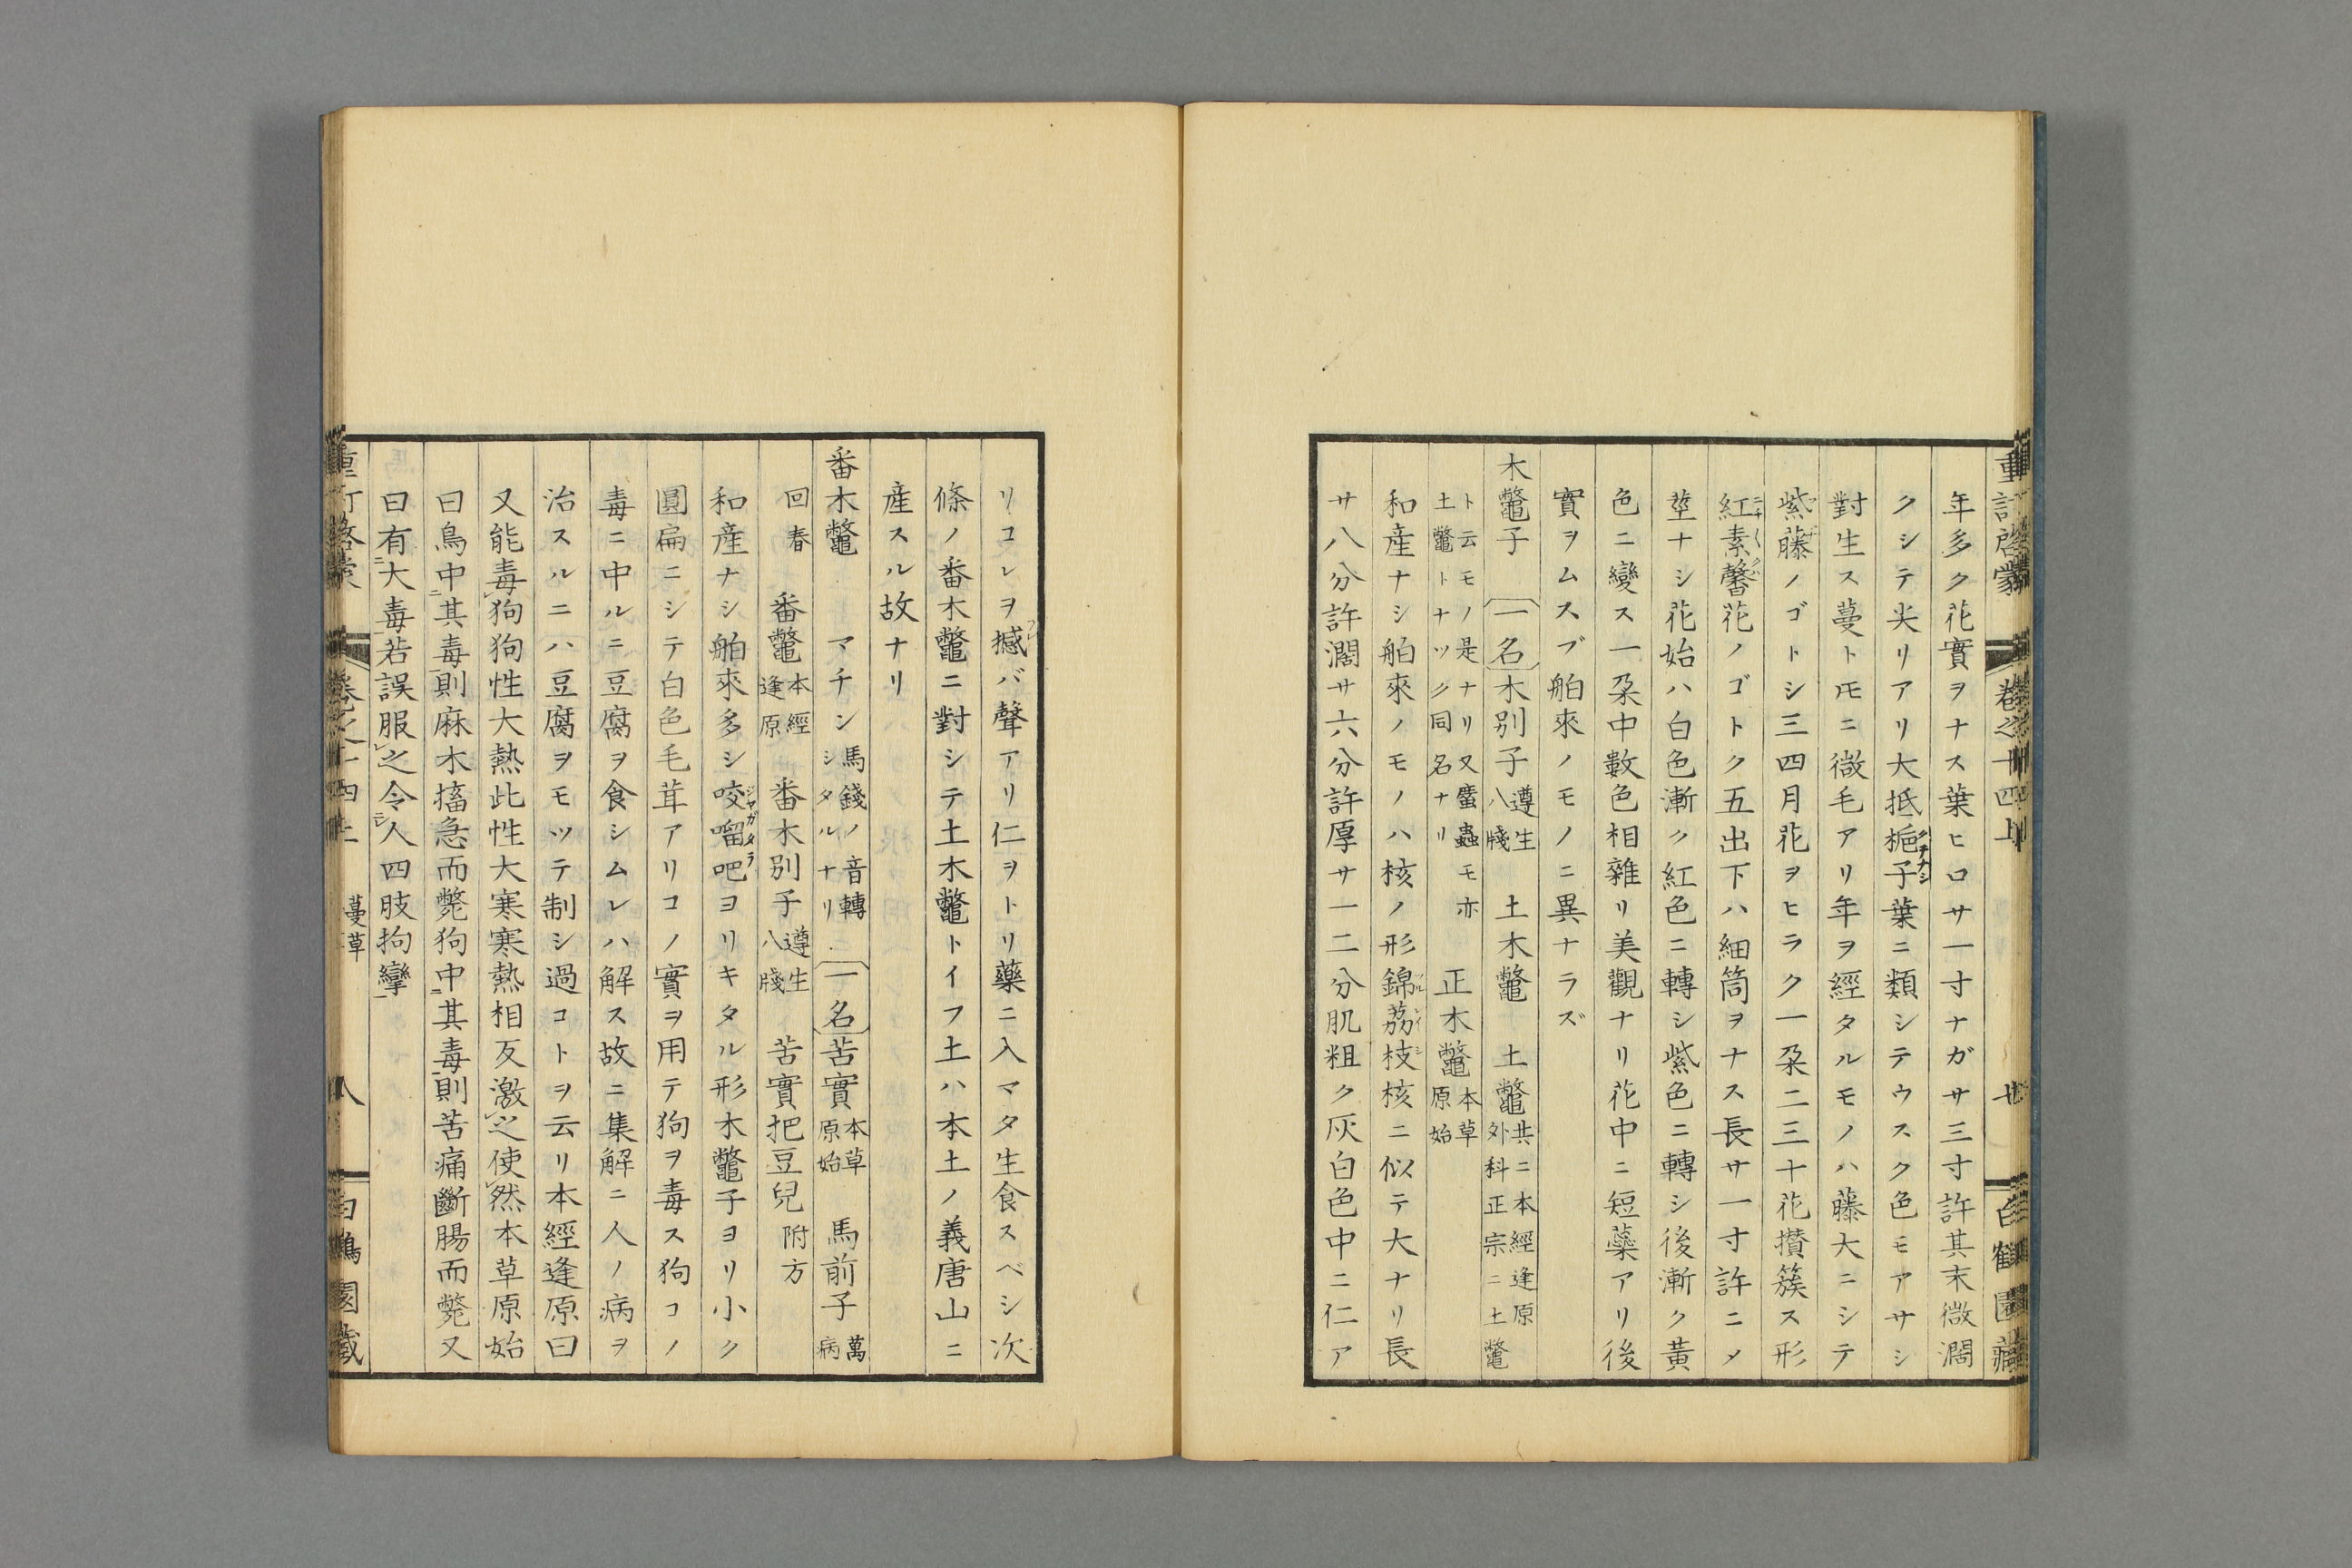 重訂啓蒙 卷之十四上 廿 白鶴園藏
年多ク花實ヲナス葉ヒロサ一寸ナガサ三寸許其末微濶
クシテ尖リアリ大抵梔子葉ニ類シテウスク色モアサシ
クチナシ
對生ス蔓トモニ微毛アリ年ヲ經タルモノハ藤大ニシテ
紫藤ノゴトシ三四月花ヲヒラク一朶二三十花攅簇ス形
紅素馨花ノゴトク五出下ハ細筒ヲナス長サ一寸許ニメ
莖ナシ花始ハ白色漸ク紅色ニ轉シ紫色ニ轉シ後漸ク黃
色ニ變ス一朶中數色相雜リ美觀ナリ花中ニ短蘂アリ後
實ヲムスブ舶來ノモノニ異ナラズ
木鼈子 一名木別子 遵生八牋 土木鼈 土鼈 共ニ本經逢原外科正宗ニ土鼈
ト云モノ是ナリ又䗪蟲モ亦土鼈トナツク同名ナリ 正木鼈 本草原始
和産ナシ舶來ノモノハ核ノ形錦茘枝核ニ似テ大ナリ長
ツルレイシ
サ八分許濶サ六分許厚サ一二分肌粗ク灰白色中ニ仁ア
リコレヲ撼バ聲アリ仁ヲトリ藥ニ入マタ生食スベシ次
フレ
條ノ番木鼈ニ對シテ土木鼈トイフ土ハ本土ノ義唐山ニ
産スル故ナリ
番木鼈 マチン 馬錢ノ音轉シタルナリ 一名苦實 本草原始 馬前子 萬病
回春 番鼈 本經逢原 番木別子 遵生八牋 苦實把豆兒 附方
和産ナシ舶來多シ咬𠺕吧ヨリキタル形木鼈子ヨリ小ク
ジヤガタラ
圓扁ニシテ白色毛茸アリコノ實ヲ用テ狗ヲ毒ス狗コノ
毒ニ中ルニ豆腐ヲ食シムレハ解ス故ニ集解ニ人ノ病ヲ
治スルニハ豆腐ヲモツテ制シ過コトヲ云リ本經逢原曰
又能毒狗狗性大熱此性大寒寒熱相反激之使然本草原始
曰鳥中其毒則麻木搐急而斃狗中其毒則苦痛斷腸而斃又
曰有大毒若誤服之令人四肢拘攣
重訂啓蒙 卷之十四上 蔓草 八 白鶴園藏